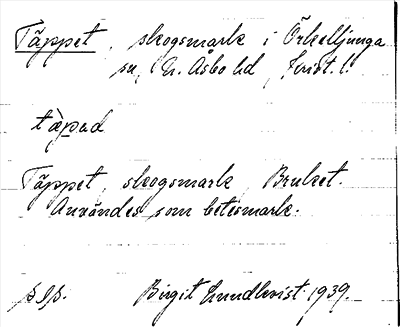 Täppet, skogsmark i Örkelljunga
sn, N. Åsbo hd, Krist. l.
tàpad
Täppet, skogsmark, Bruket.
Användes som betesmark.
Birgit Lundkvist 1939.